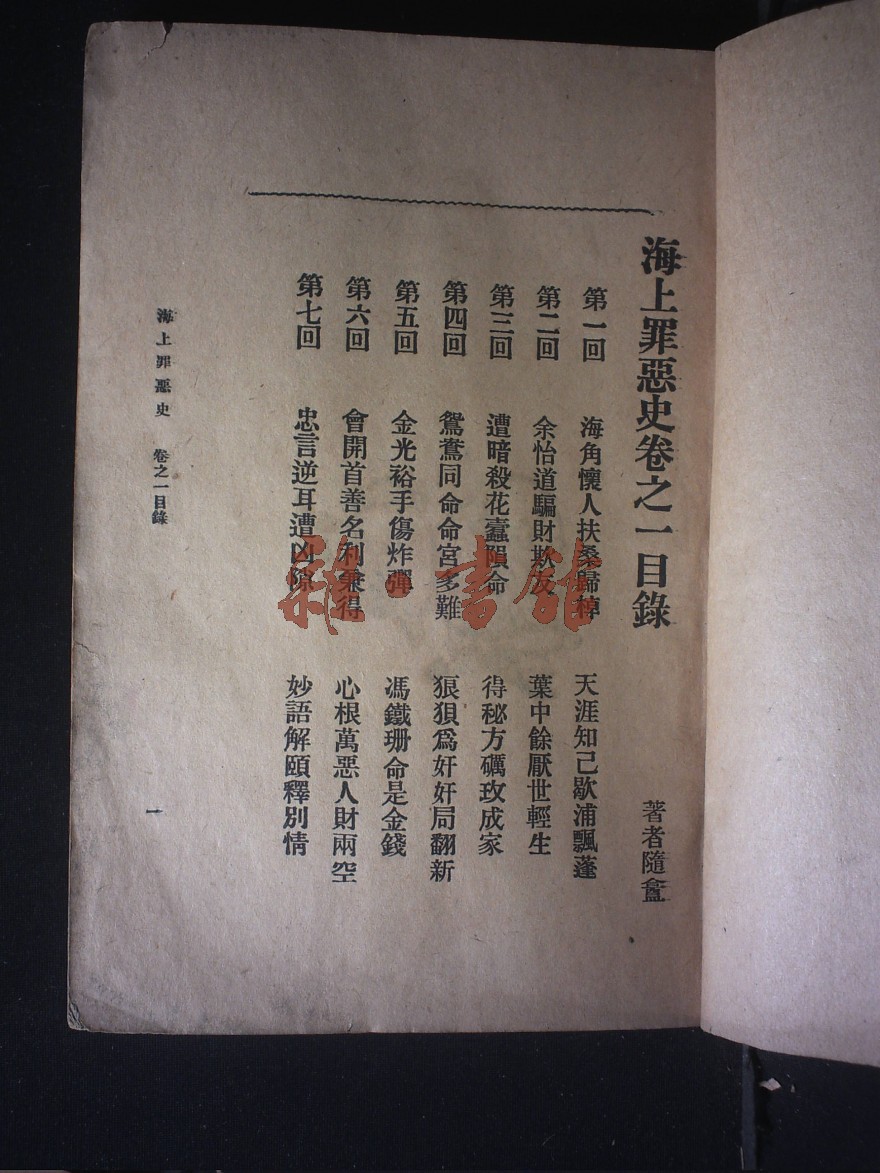 海上罪惡史卷之一目錄
著者隨盦
第一回 海角懷人扶桑歸棹 天涯知己歇浦飄蓬
第二回 余怡道騙財欺友 葉中餘厭世輕生
第三回 遭暗殺花蠹隕命 得秘方礪玫成家
第四回 鴛鴦同命命宮多難 狼狽爲奸奸局翻新
第五回 金光裕手傷炸彈 馮鐵珊命是金錢
第六回 會開首善名利兼得 心根萬惡人財兩空
第七回 忠言逆耳遭凶隙 妙語解頤釋別情
海上罪惡史 卷之一目錄
一
雜·書館